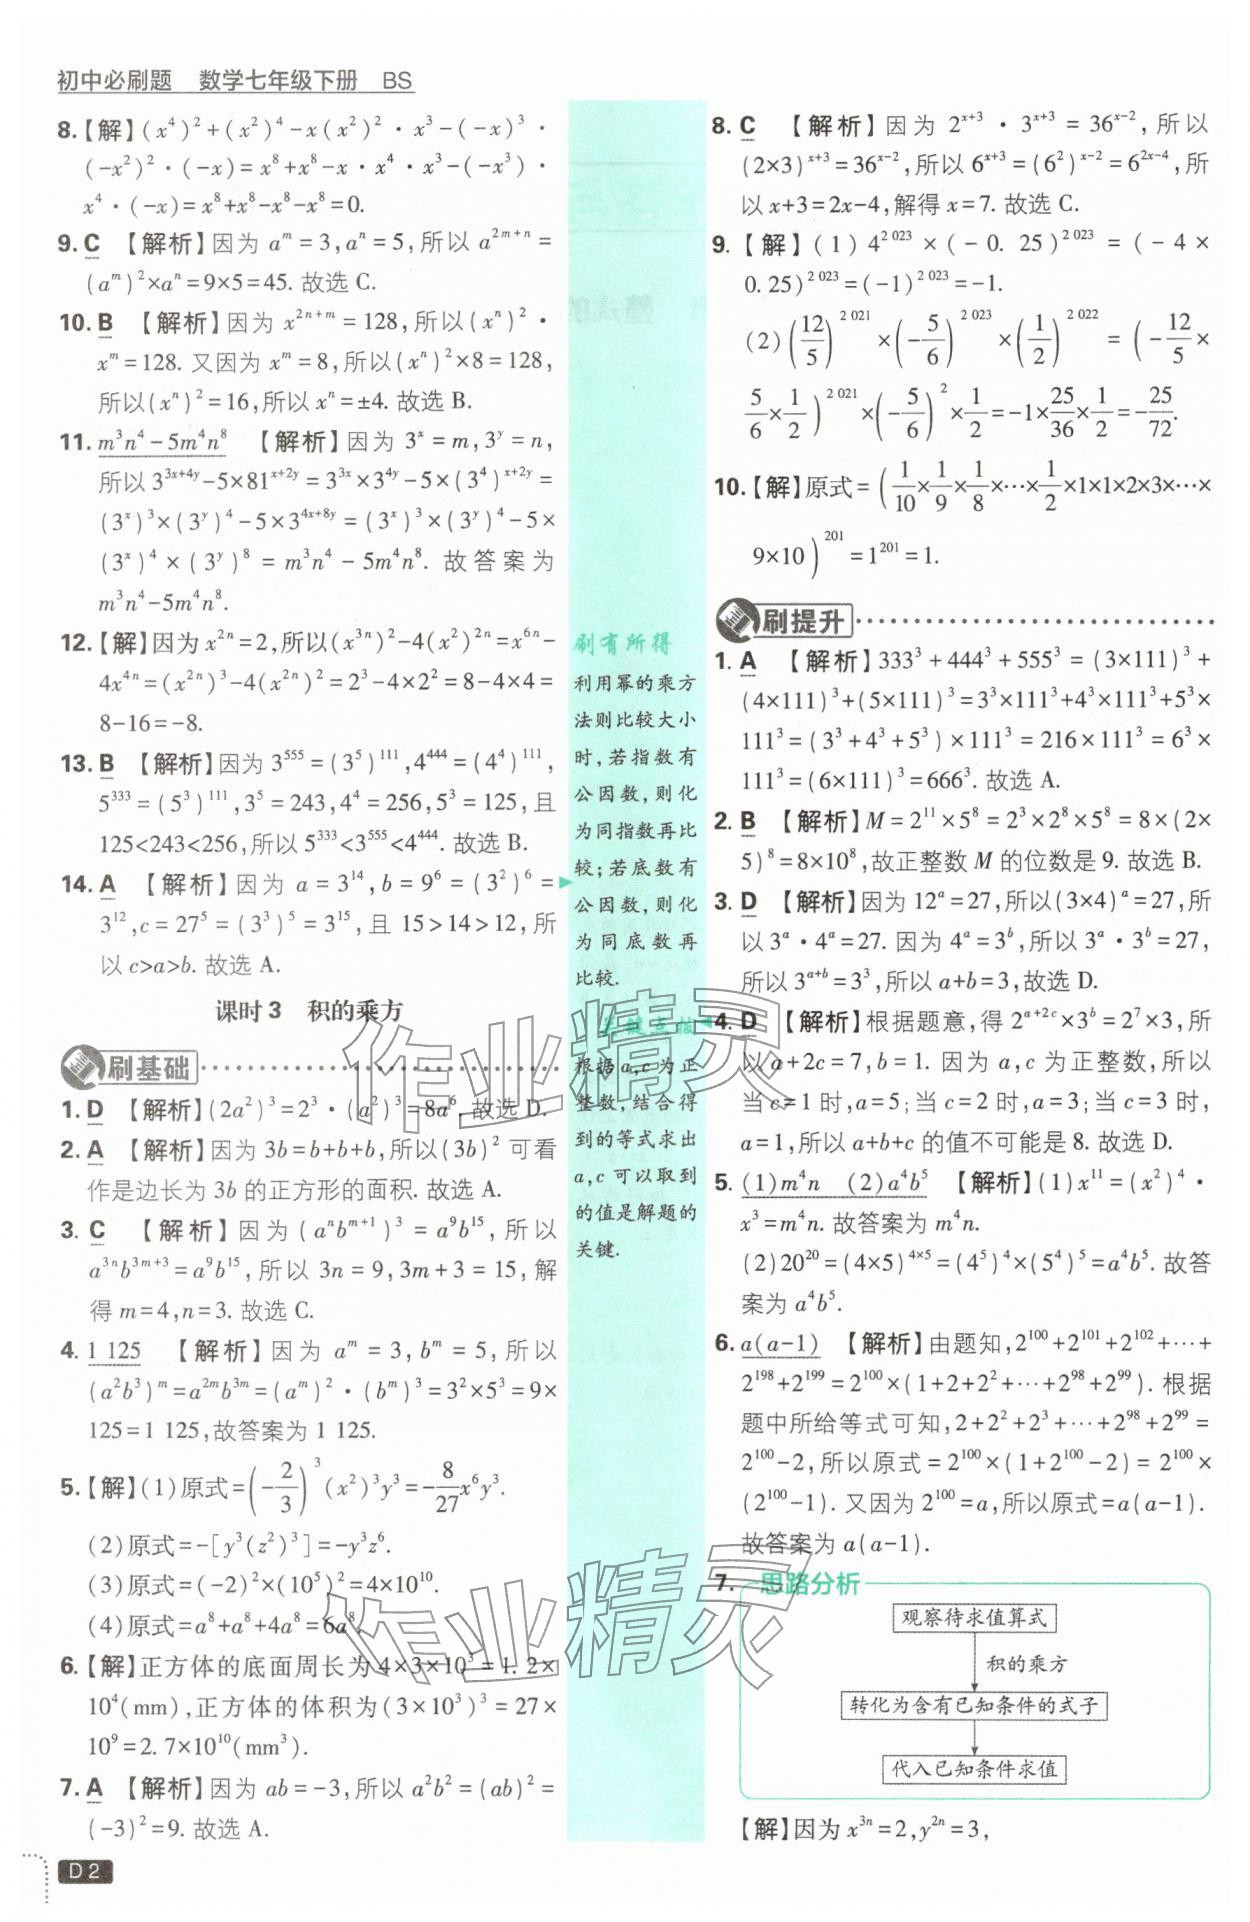 初中必刷题 数学七年级下册 BS
8.【解】(x⁴)²+(x²)⁴-x(x²)²·x³-(-x)³·
(-x²)²·(-x)=x⁸+x⁸-x·x⁴·x³-(-x³)·
x⁴·(-x)=x⁸+x⁸-x⁸-x⁸=0.
9. C 【解析】因为 aᵐ=3,aⁿ=5,所以 a²ᵐ⁺ⁿ=
(aᵐ)²×aⁿ=9×5=45. 故选 C.
10. B 【解析】因为 x²ⁿ⁺ᵐ=128,所以(xⁿ)²·
xᵐ=128. 又因为 xᵐ=8,所以(xⁿ)²×8=128,
所以(xⁿ)²=16,所以 xⁿ=±4. 故选 B.
11. m³n⁴-5m⁴n⁸ 【解析】因为 3ˣ=m,3ʸ=n,
所以 3³ˣ⁺⁴ʸ-5×81ˣ⁺²ʸ=3³ˣ×3⁴ʸ-5×(3⁴)ˣ⁺²ʸ=
(3ˣ)³×(3ʸ)⁴-5×3⁴ˣ⁺⁸ʸ=(3ˣ)³×(3ʸ)⁴-5×
(3ˣ)⁴×(3ʸ)⁸=m³n⁴-5m⁴n⁸. 故答案为
m³n⁴-5m⁴n⁸.
12.【解】因为 x²ⁿ=2,所以(x³ⁿ)²-4(x²)²ⁿ=x⁶ⁿ-
4x⁴ⁿ=(x²ⁿ)³-4(x²ⁿ)²=2³-4×2²=8-4×4=
8-16=-8.
13. B 【解析】因为 3⁵⁵⁵=(3⁵)¹¹¹,4⁴⁴⁴=(4⁴)¹¹¹,
5³³³=(5³)¹¹¹,3⁵=243,4⁴=256,5³=125,且
125<243<256,所以 5³³³<3⁵⁵⁵<4⁴⁴⁴. 故选 B.
14. A 【解析】因为 a=3¹⁴,b=9⁶=(3²)⁶=
3¹²,c=27⁵=(3³)⁵=3¹⁵,且 15>14>12,所
以 c>a>b. 故选 A.
课时3 积的乘方
刷基础
1. D 【解析】(2a²)³=2³·(a²)³=8a⁶. 故选 D.
2. A 【解析】因为 3b=b+b+b,所以(3b)²可看
作是边长为 3b 的正方形的面积. 故选 A.
3. C 【解析】因为(aⁿbᵐ⁺¹)³=a⁹b¹⁵,所以
a³ⁿb³ᵐ⁺³=a⁹b¹⁵,所以 3n=9,3m+3=15,解
得 m=4,n=3. 故选 C.
4. 1 125 【解析】因为 aᵐ=3,bᵐ=5,所以
(a²b³)ᵐ=a²ᵐb³ᵐ=(aᵐ)²·(bᵐ)³=3²×5³=9×
125=1 125,故答案为 1 125.
5.【解】(1)原式=(-2/3)³(x²)³y³=-8/27x⁶y³.
(2)原式=-[y³(z²)³]=-y³z⁶.
(3)原式=(-2)²×(10⁵)²=4×10¹⁰.
(4)原式=a⁸+a⁸+4a⁸=6a⁸.
6.【解】正方体的底面周长为 4×3×10³=1. 2×
10⁴(mm),正方体的体积为(3×10³)³=27×
10⁹=2. 7×10¹⁰(mm³).
7. A 【解析】因为 ab=-3,所以 a²b²=(ab)²=
(-3)²=9. 故选 A.
D 2
刷有所得
利用幂的乘方
法则比较大小
时,若指数有
公因数,则化
为同指数再比
较;若底数有
公因数,则化
为同底数再
比较.
关键点拨
根据 a,c 为正
整数,结合得
到的等式求出
a,c 可以取到
的值是解题的
关键.
8. C 【解析】因为 2ˣ⁺³·3ˣ⁺³=36ˣ⁻²,所以
(2×3)ˣ⁺³=36ˣ⁻²,所以 6ˣ⁺³=(6²)ˣ⁻²=6²ˣ⁻⁴,所
以 x+3=2x-4,解得 x=7. 故选 C.
9.【解】(1)4²⁰²³×(-0. 25)²⁰²³=(-4×
0. 25)²⁰²³=(-1)²⁰²³=-1.
(2)(12/5)²⁰²¹×(-5/6)²⁰²³×(1/2)²⁰²²=(-12/5×
5/6×1/2)²⁰²¹×(-5/6)²×1/2=-1×25/36×1/2=-25/72.
10.【解】原式=(1/10×1/9×1/8×…×1/2×1×1×2×3×…×
9×10)²⁰¹=1²⁰¹=1.
刷提升
1. A 【解析】333³+444³+555³=(3×111)³+
(4×111)³+(5×111)³=3³×111³+4³×111³+5³×
111³=(3³+4³+5³)×111³=216×111³=6³×
111³=(6×111)³=666³. 故选 A.
2. B 【解析】M=2¹¹×5⁸=2³×2⁸×5⁸=8×(2×
5)⁸=8×10⁸,故正整数 M 的位数是 9. 故选 B.
3. D 【解析】因为 12ᵃ=27,所以(3×4)ᵃ=27,所
以 3ᵃ·4ᵃ=27. 因为 4ᵃ=3ᵇ,所以 3ᵃ·3ᵇ=27,
所以 3ᵃ⁺ᵇ=3³,所以 a+b=3. 故选 D.
4. D 【解析】根据题意,得 2ᵃ⁺²ᶜ×3ᵇ=2⁷×3,所
以 a+2c=7,b=1. 因为 a,c 为正整数,所以
当 c=1 时,a=5;当 c=2 时,a=3;当 c=3 时,
a=1,所以 a+b+c 的值不可能是 8. 故选 D.
5. (1)m⁴n (2)a⁴b⁵ 【解析】(1)x¹¹=(x²)⁴·
x³=m⁴n. 故答案为 m⁴n.
(2)20²⁰=(4×5)⁴ˣ⁵=(4⁵)⁴×(5⁴)⁵=a⁴b⁵. 故答
案为 a⁴b⁵.
6. a(a-1) 【解析】由题知,2¹⁰⁰+2¹⁰¹+2¹⁰²+…+
2¹⁹⁸+2¹⁹⁹=2¹⁰⁰×(1+2+2²+…+2⁹⁸+2⁹⁹). 根据
题中所给等式可知,2+2²+2³+…+2⁹⁸+2⁹⁹=
2¹⁰⁰-2,所以原式=2¹⁰⁰×(1+2¹⁰⁰-2)=2¹⁰⁰×
(2¹⁰⁰-1). 又因为 2¹⁰⁰=a,所以原式=a(a-1).
故答案为 a(a-1).
7. 思路分析
观察待求值算式
积的乘方
转化为含有已知条件的式子
代入已知条件求值
【解】因为 x³ⁿ=2,y²ⁿ=3,
作业精灵
作业精灵